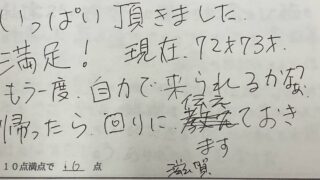 いっぱい頂きました.
満足! 現在. 72才73才.
もう一度. 自力で来られるかなぁ
帰ったら. 回りに 伝えておき
ます
滋賀
10点満点で +10 点